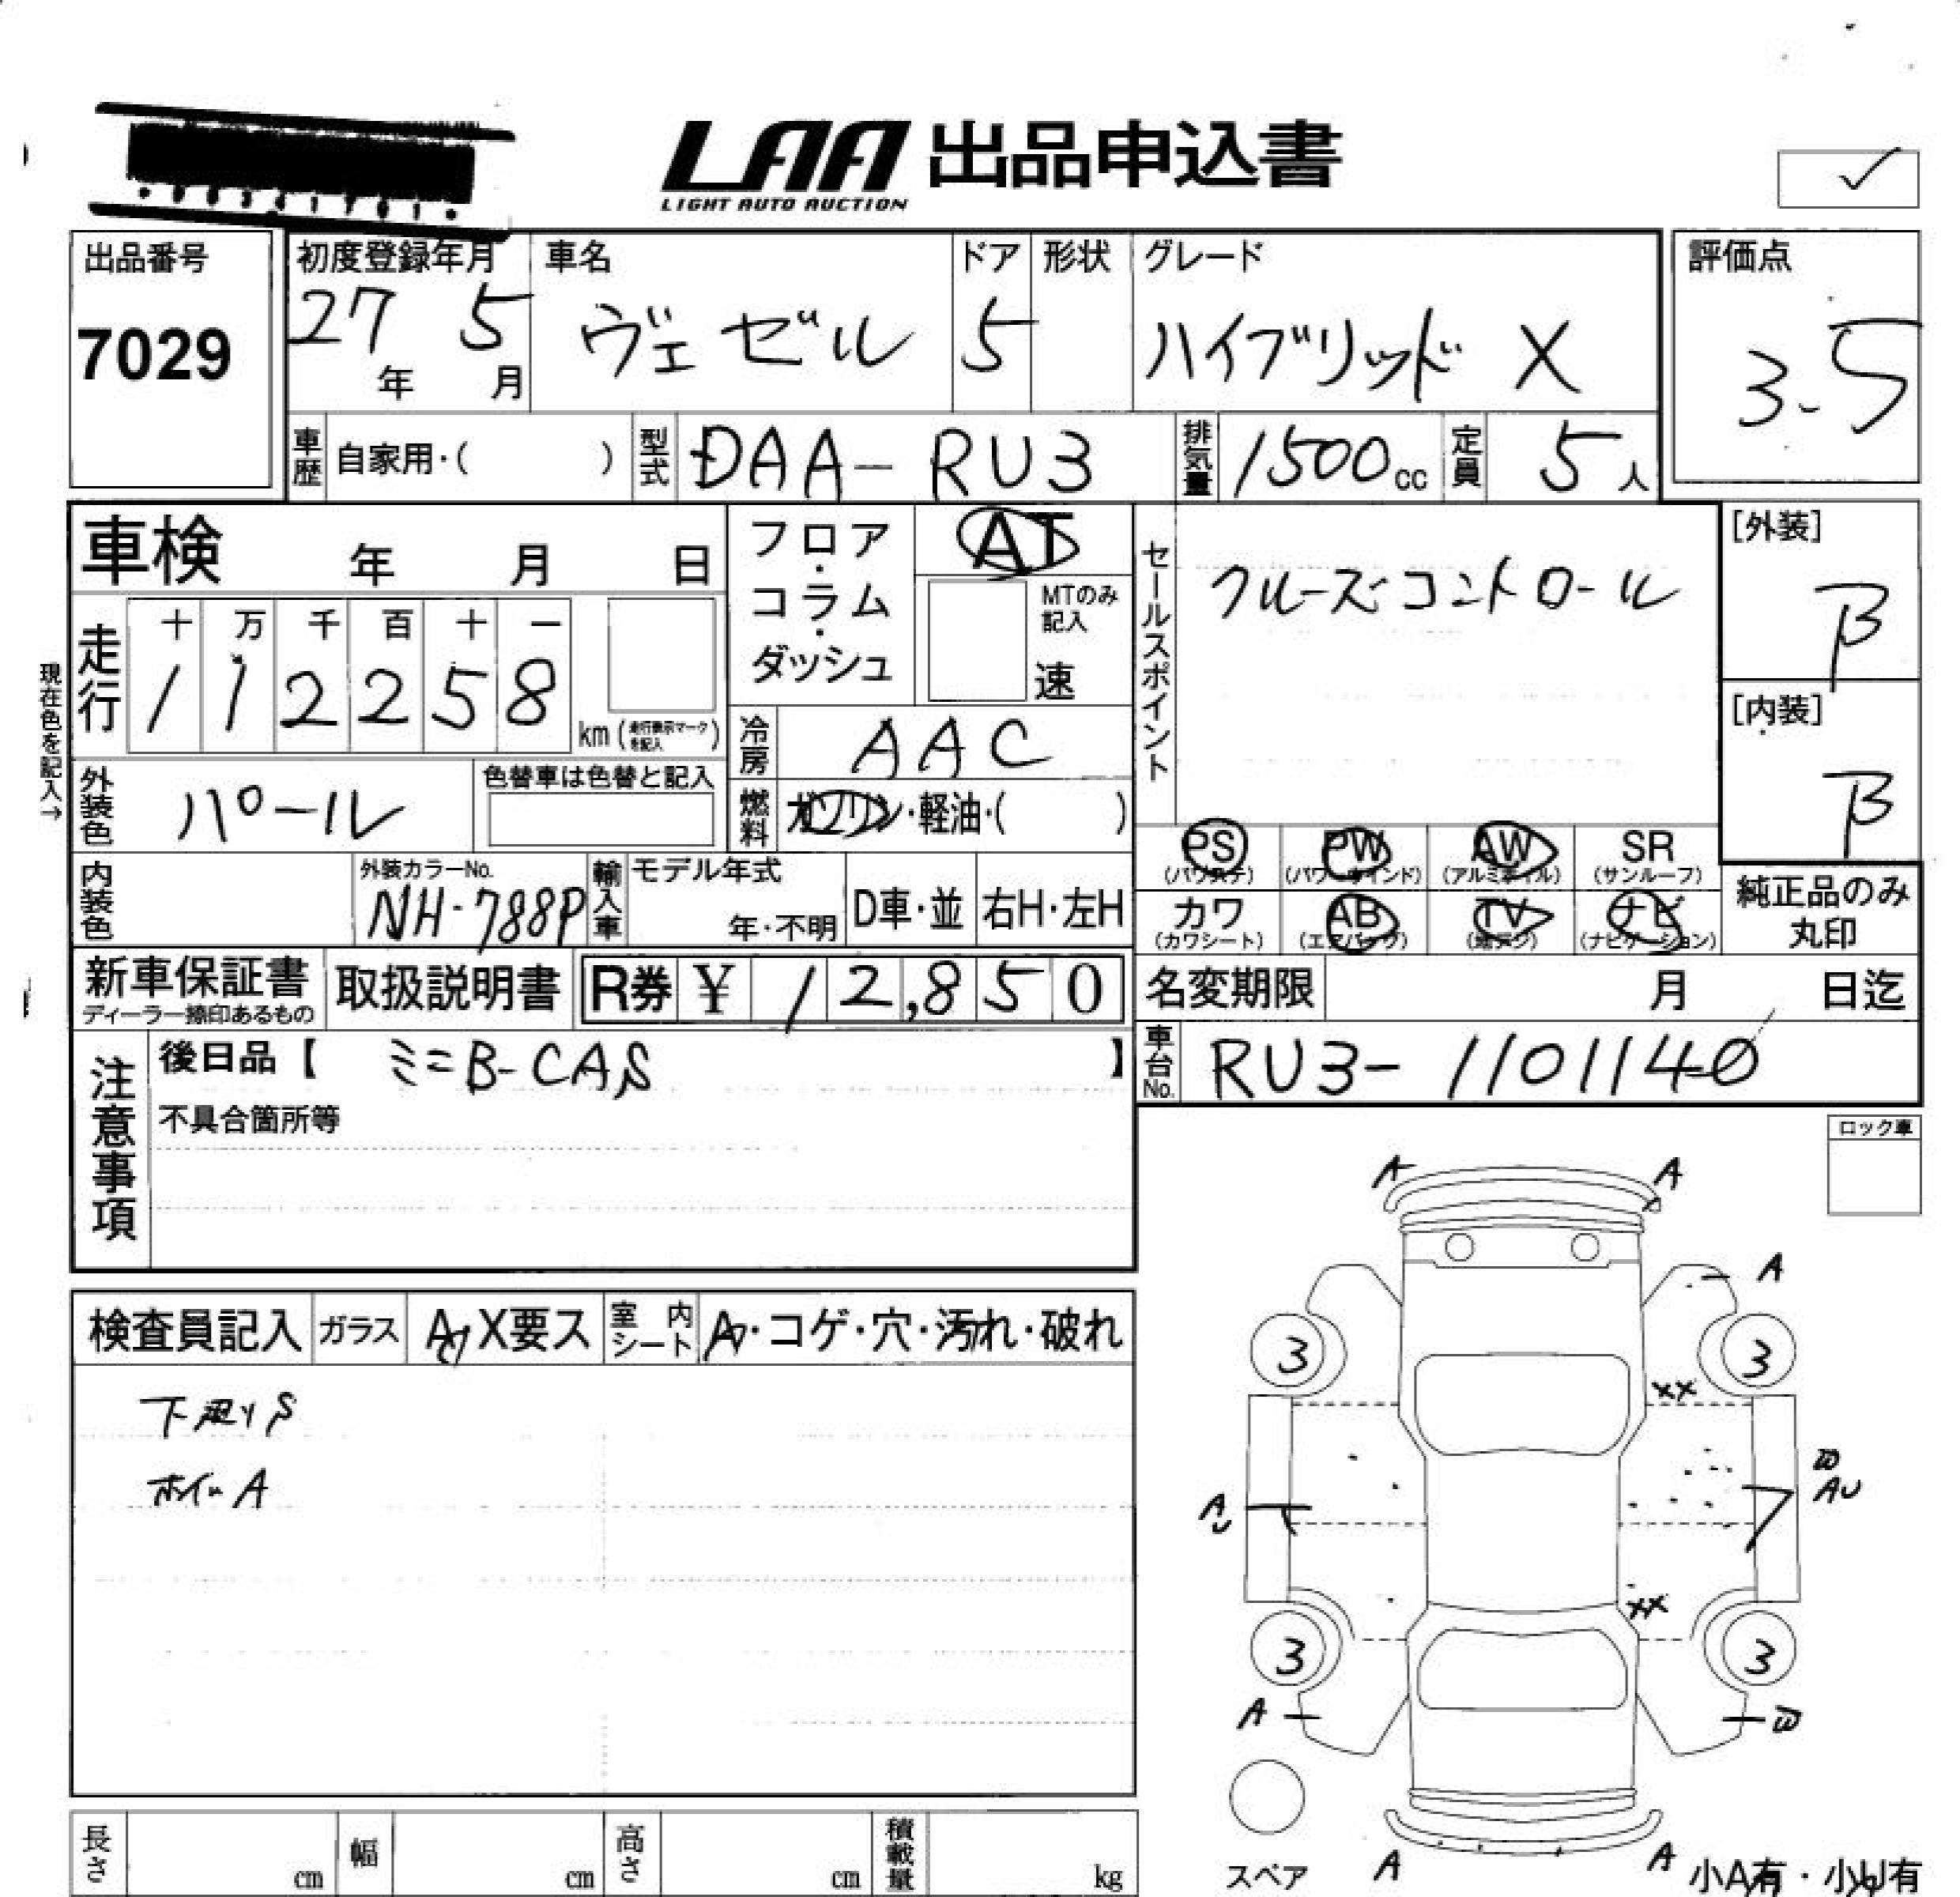 LAA 出品申込書
LIGHT AUTO AUCTION
✓
出品番号
7029
初度登録年月
27年 5月
車名
ヴェゼル
ドア
5
形状
グレード
ハイブリッド X
評価点
3.5
車歴 自家用・( )
型式 DAA-RU3
排気量 1500cc
定員 5人
車検 年 月 日
フロア・コラム・ダッシュ
AT
MTのみ記入
速
セールスポイント
クルーズコントロール
[外装]
B
[内装]
B
現在色を記入→
走行
十 万 千 百 十 一
1 1 2 2 5 8
km (走行表示マークを記入)
冷房 AAC
外装色 パール
色替車は色替と記入
燃料 ガソリン・軽油・( )
PS (パワステ)
PW (パワーウインド)
AW (アルミホイル)
SR (サンルーフ)
カワ (カワシート)
AB (エアバッグ)
TV (地デジ)
ナビ (ナビゲーション)
純正品のみ丸印
内装色
外装カラーNo.
NH-788P
輸入車
モデル年式
年・不明
D車・並
右H・左H
新車保証書
ディーラー捺印あるもの
取扱説明書
R券 ¥ 12,850
名変期限 月 日迄
車台No. RU3-1101140
注意事項
後日品【 ミニB-CAS 】
不具合箇所等
ロック車
検査員記入
ガラス
A X要ス
室内シート
A・コゲ・穴・汚れ・破れ
下廻りS
ホイールA
A A
A
3 3
XX
W
AU
A
U
XX
3 3
A W
A A
スペア
小A有・小U有
長さ cm
幅 cm
高さ cm
積載量 kg